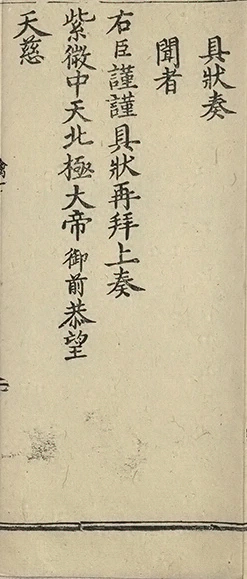 具狀奏
聞者
右臣謹謹具狀再拜上奏
紫微中天北極大帝御前恭望
天慈